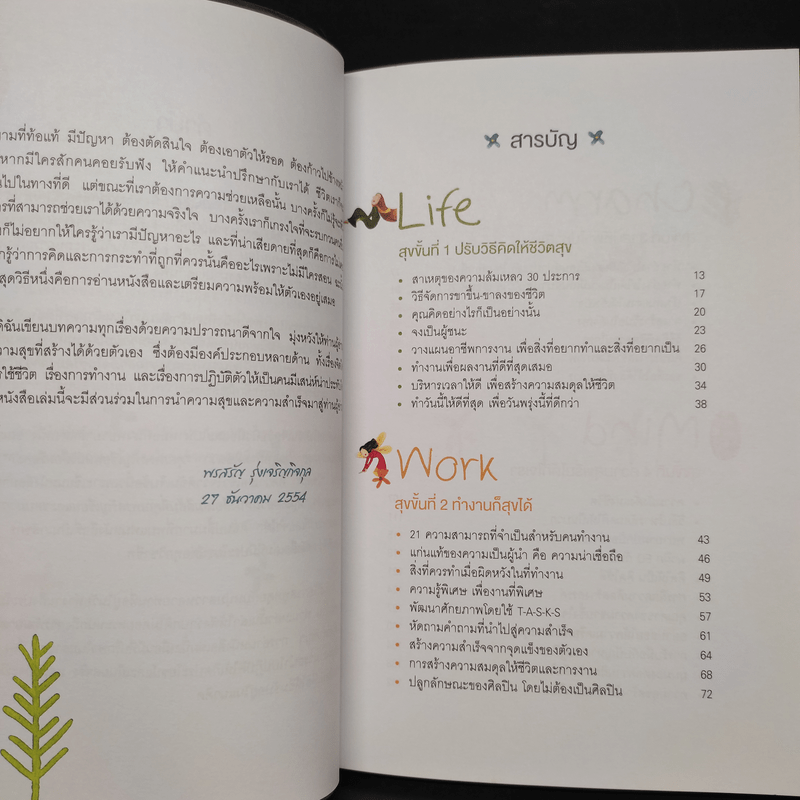 ามที่ท้อแท้ มีปัญหา ต้องตัดสินใจ ต้องเอาตัวให้รอด ต้องก้าวไปข้างหน้า
หากมีใครสักคนคอยรับฟัง ให้คำแนะนำปรึกษากับเราได้ ชีวิตเราก็
นไปในทางที่ดี แต่ขณะที่เราต้องการความช่วยเหลือนั้น บางครั้งก็ไม่รู้
รที่สามารถช่วยเราได้ด้วยความจริงใจ บางครั้งเราก็เกรงใจที่จะรบกวน
งก็ไม่อยากให้ใครรู้ว่าเรามีปัญหาอะไร และที่น่าเสียดายที่สุดก็คือการ
กรู้ว่าการคิดและการกระทำที่ถูกที่ควรนั้นคืออะไรเพราะไม่มีใครสอน
สุดวิธีหนึ่งคือการอ่านหนังสือและเตรียมความพร้อมให้ตัวเองอยู่เสมอ
ดิฉันเขียนบทความทุกเรื่องด้วยความปรารถนาดีจากใจ มุ่งหวังให้ท่าน
วามสุขที่สร้างได้ด้วยตัวเอง ซึ่งต้องมีองค์ประกอบหลายด้าน ทั้งเรื่อง
ใช้ชีวิต เรื่องการทำงาน และเรื่องการปฏิบัติตัวให้เป็นคนมีเสน่ห์น่าประทับ
หนังสือเล่มนี้จะมีส่วนร่วมในการนำความสุขและความสำเร็จมาสู่ท่าน
พรสรัญ รุ่งเจริญกิจกุล
27 ธันวาคม 2554
สารบัญ
Life
สุขขั้นที่ 1 ปรับวิธีคิดให้ชีวิตสุข
• สาเหตุของความล้มเหลว 30 ประการ 13
• วิธีจัดการขาขึ้น-ขาลงของชีวิต 17
• คุณคิดอย่างไรก็เป็นอย่างนั้น 20
• จงเป็นผู้ชนะ 23
• วางแผนอาชีพการงาน เพื่อสิ่งที่อยากทำและสิ่งที่อยากเป็น 26
• ทำงานเพื่อผลงานที่ดีที่สุดเสมอ 30
• บริหารเวลาให้ดี เพื่อสร้างความสมดุลให้ชีวิต 34
• ทำวันนี้ให้ดีที่สุด เพื่อวันพรุ่งนี้ที่ดีกว่า 38
Work
สุขขั้นที่ 2 ทำงานก็สุขได้
• 21 ความสามารถที่จำเป็นสำหรับคนทำงาน 43
• แก่นแท้ของความเป็นผู้นำ คือ ความน่าเชื่อถือ 46
• สิ่งที่ควรทำเมื่อผิดหวังในที่ทำงาน 49
• ความรู้พิเศษ เพื่องานที่พิเศษ 53
• พัฒนาศักยภาพโดยใช้ T-A-S-K-S 57
• หัดถามคำถามที่นำไปสู่ความสำเร็จ 61
• สร้างความสำเร็จจากจุดแข็งของตัวเอง 64
• การสร้างความสมดุลให้ชีวิตและการงาน 68
• ปลูกลักษณะของศิลปิน โดยไม่ต้องเป็นศิลปิน 72